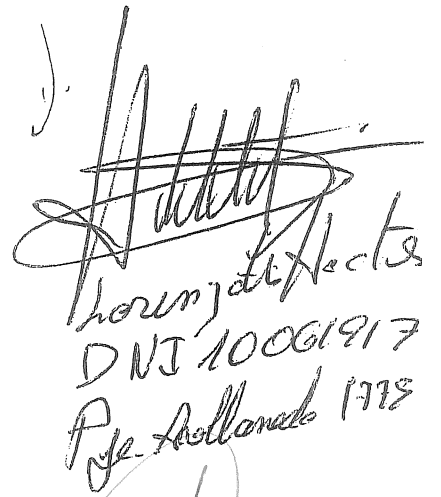 Lorenzati Hector
DNI 10061917
Pje. Avellaneda 1778